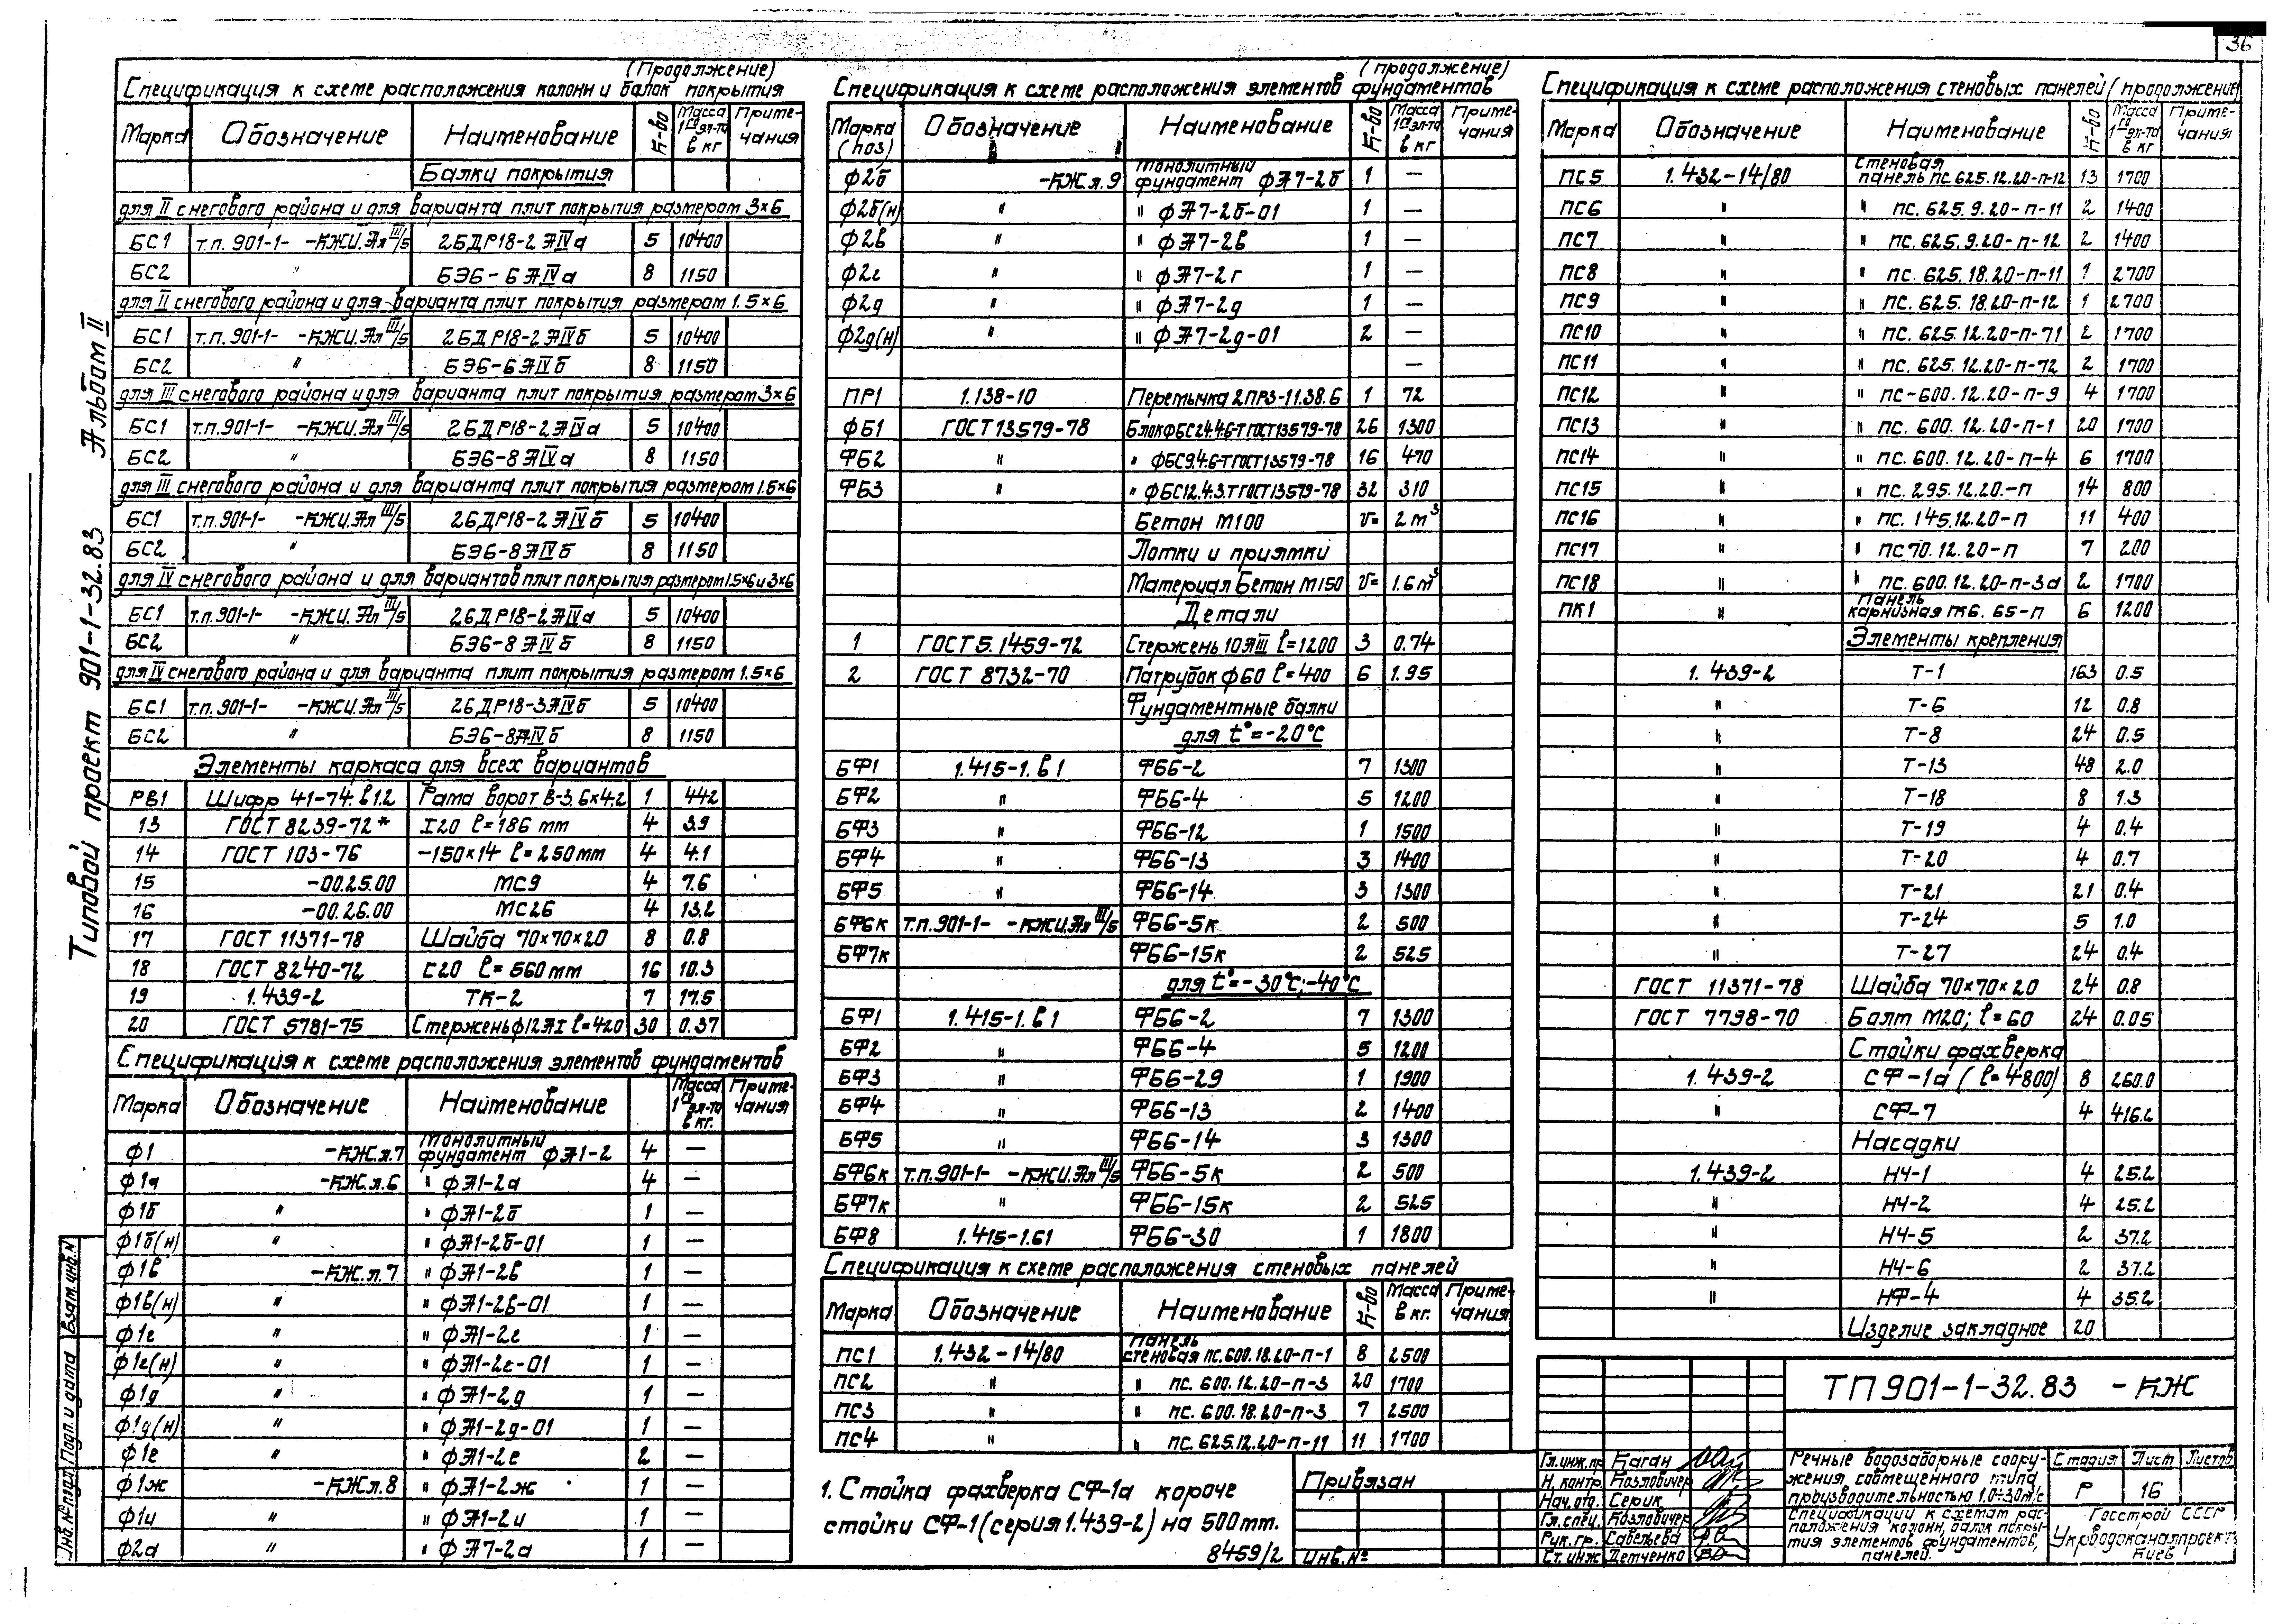 36
Типовой проект 901-1-32.83 Альбом II
(Продолжение)
Спецификация к схеме расположения колонн и балок покрытия
Марка Обозначение Наименование К-во Масса 1го эл-та в кг Приме-чания
Балки покрытия
для II снегового района и для варианта плит покрытия размером 3×6
БС1 т.п. 901-1- -КЖИ.Ал III/5 2БДР18-2АIVа 5 10400
БС2 " БЭ6-6АIVа 8 1150
для II снегового района и для варианта плит покрытия размером 1.5×6
БС1 т.п. 901-1- -КЖИ.Ал III/5 2БДР18-2АIVб 5 10400
БС2 " БЭ6-6АIVб 8 1150
для III снегового района и для варианта плит покрытия размером 3×6
БС1 т.п.901-1- -КЖИ.Ал III/5 2БДР18-2АIVа 5 10400
БС2 " БЭ6-8АIVа 8 1150
для III снегового района и для варианта плит покрытия размером 1.5×6
БС1 т.п.901-1- -КЖИ.Ал III/5 2БДР18-2АIVб 5 10400
БС2 " БЭ6-8АIVб 8 1150
для IV снегового района и для вариантов плит покрытия размером 1.5×6 и 3×6
БС1 т.п.901-1- -КЖИ.Ал III/5 2БДР18-2АIVа 5 10400
БС2 " БЭ6-8АIVб 8 1150
для IV снегового района и для варианта плит покрытия размером 1.5×6
БС1 т.п.901-1- -КЖИ.Ал III/5 2БДР18-3АIVб 5 10400
БС2 " БЭ6-8АIVб 8 1150
Элементы каркаса для всех вариантов
РВ1 Шифр 41-74.в1.2 Рама ворот В-3.6×4.2 1 442
13 ГОСТ 8239-72* I20 ℓ=186 mm 4 3.9
14 ГОСТ 103-76 -150×14 ℓ=250mm 4 4.1
15 -00.25.00 МС9 4 7.6
16 -00.26.00 МС26 4 13.2
17 ГОСТ 11371-78 Шайба 70×70×20 8 0.8
18 ГОСТ 8240-72 С20 ℓ=560mm 16 10.3
19 1.439-2 ТК-2 7 17.5
20 ГОСТ 5781-75 Стержень ф12АI ℓ=420 30 0.37
Спецификация к схеме расположения элементов фундаментов
Марка Обозначение Наименование Масса 1го эл-та в кг. Приме-чания
Ф1 -КЖ.л.7 Монолитный фундамент ФА1-2 4 —
Ф1а -КЖ.л.6 " ФА1-2а 4 —
Ф1б " " ФА1-2б 1 —
Ф1б(н) " " ФА1-2б-01 1 —
Ф1в -КЖ.л.7 " ФА1-2в 1 —
Ф1в(н) " " ФА1-2в-01 1 —
Ф1г " " ФА1-2г 1 —
Ф1г(н) " " ФА1-2г-01 1 —
Ф1д " " ФА1-2д 1 —
Ф1д(н) " " ФА1-2д-01 1 —
Ф1е " " ФА1-2е 2 —
Ф1ж -КЖ.л.8 " ФА1-2ж 1 —
Ф1и " " ФА1-2и 1 —
Ф2а " " ФА7-2а 1 —
(продолжение)
Спецификация к схеме расположения элементов фундаментов
Марка (поз) Обозначение Наименование К-во Масса 1го эл-та в кг Приме-чания
Ф2б -КЖ.л.9 Монолитный фундамент ФА7-2б 1 —
Ф2б(н) " " ФА7-2б-01 1 —
Ф2в " " ФА7-2в 1 —
Ф2г " " ФА7-2г 1 —
Ф2д " " ФА7-2д 1 —
Ф2д(н) " " ФА7-2д-01 2 —
—
ПР1 1.138-10 Перемычка 2ПР3-11.38.6 1 72
ФБ1 ГОСТ 13579-78 Блок ФБС24.4.6-Т ГОСТ13579-78 26 1300
ФБ2 " " ФБС9.4.6-Т ГОСТ13579-78 16 470
ФБ3 " " ФБС12.4.3.Т ГОСТ13579-78 32 310
Бетон М100 v= 2м³
Лотки и приямки
Материал Бетон М150 v= 1.6м³
Детали
1 ГОСТ 5.1459-72 Стержень 10АIII ℓ=1200 3 0.74
2 ГОСТ 8732-70 Патрубок ф60 ℓ=400 6 1.95
Фундаментные балки
для t°=-20°С
БФ1 1.415-1.в1 ФБ6-2 7 1300
БФ2 " ФБ6-4 5 1200
БФ3 " ФБ6-12 1 1500
БФ4 " ФБ6-13 3 1400
БФ5 " ФБ6-14 3 1300
БФ6к т.п.901-1- -КЖИ.Ал III/5 ФБ6-5к 2 500
БФ7к ФБ6-15к 2 525
для t°=-30°С;-40°С
БФ1 1.415-1.в1 ФБ6-2 7 1300
БФ2 " ФБ6-4 5 1200
БФ3 " ФБ6-29 1 1900
БФ4 " ФБ6-13 2 1400
БФ5 " ФБ6-14 3 1300
БФ6к т.п.901-1- -КЖИ.Ал III/5 ФБ6-5к 2 500
БФ7к " ФБ6-15к 2 525
БФ8 1.415-1.в1 ФБ6-30 1 1800
Спецификация к схеме расположения стеновых панелей
Марка Обозначение Наименование К-во Масса в кг. Приме-чания
ПС1 1.432-14/80 Панель стеновая пс.600.18.20-п-1 8 2500
ПС2 " " пс. 600.12.20-п-3 20 1700
ПС3 " " пс. 600.18.20-п-3 7 2500
ПС4 " " пс. 625.12.20-п-11 11 1700
1. Стойка фахверка СФ-1а короче
стойки СФ-1(серия 1.439-2) на 500mm.
8459/2
Привязан
Инв.№
Спецификация к схеме расположения стеновых панелей (продолжение)
Марка Обозначение Наименование К-во Масса 1го эл-та в кг Приме-чания
ПС5 1.432-14/80 Стеновая панель пс.625.12.20-п-12 13 1700
ПС6 " " пс. 625.9.20-п-11 2 1400
ПС7 " " пс. 625.9.20-п-12 2 1400
ПС8 " " пс. 625.18.20-п-11 1 2700
ПС9 " " пс. 625.18.20-п-12 1 2700
ПС10 " " пс. 625.12.20-п-71 2 1700
ПС11 " " пс. 625.12.20-п-72 2 1700
ПС12 " " пс-600.12.20-п-9 4 1700
ПС13 " " пс. 600.12.20-п-1 20 1700
ПС14 " " пс. 600.12.20-п-4 6 1700
ПС15 " " пс. 295.12.20.-п 14 800
ПС16 " " пс. 145.12.20-п 11 400
ПС17 " " пс70.12.20-п 7 200
ПС18 " " пс.600.12.20-п-3а 2 1700
ПК1 " Панель карнизная ПК6.65-п 6 1200
Элементы крепления
1.439-2 Т-1 163 0.5
" Т-6 12 0.8
" Т-8 24 0.5
" Т-13 48 2.0
" Т-18 8 1.3
" Т-19 4 0.4
" Т-20 4 0.7
" Т-21 21 0.4
" Т-24 5 1.0
" Т-27 24 0.4
ГОСТ 11371-78 Шайба 70×70×20 24 0.8
ГОСТ 7798-70 Болт М20; ℓ=60 24 0.05
Стойки фахверка
1.439-2 СФ-1а (ℓ=4800) 8 260.0
" СФ-7 4 416.2
Насадки
1.439-2 НЧ-1 4 25.2
" НЧ-2 4 25.2
" НЧ-5 2 37.2
" НЧ-6 2 37.2
" НФ-4 4 35.2
Изделие закладное 20
ТП901-1-32.83 -КЖ
Гл.инж.пр Каган
Н. контр. Козловичер
Нач.отд. Серик
Гл.спец. Козловичер
Рук.гр. Савельева
Ст.инж Детченко
Речные водозаборные соору-
жения совмещенного типа
производительностью 1.0÷3.0м³/с
Спецификации к схемам рас-
положения колонн, балок покры-
тия элементов фундаментов,
панелей.
Стадия Лист Листов
Р 16
Госстрой СССР
Укрводоканалпроект
Киев
Взам.инв.N
Подп. и дата
Инв.№подл.